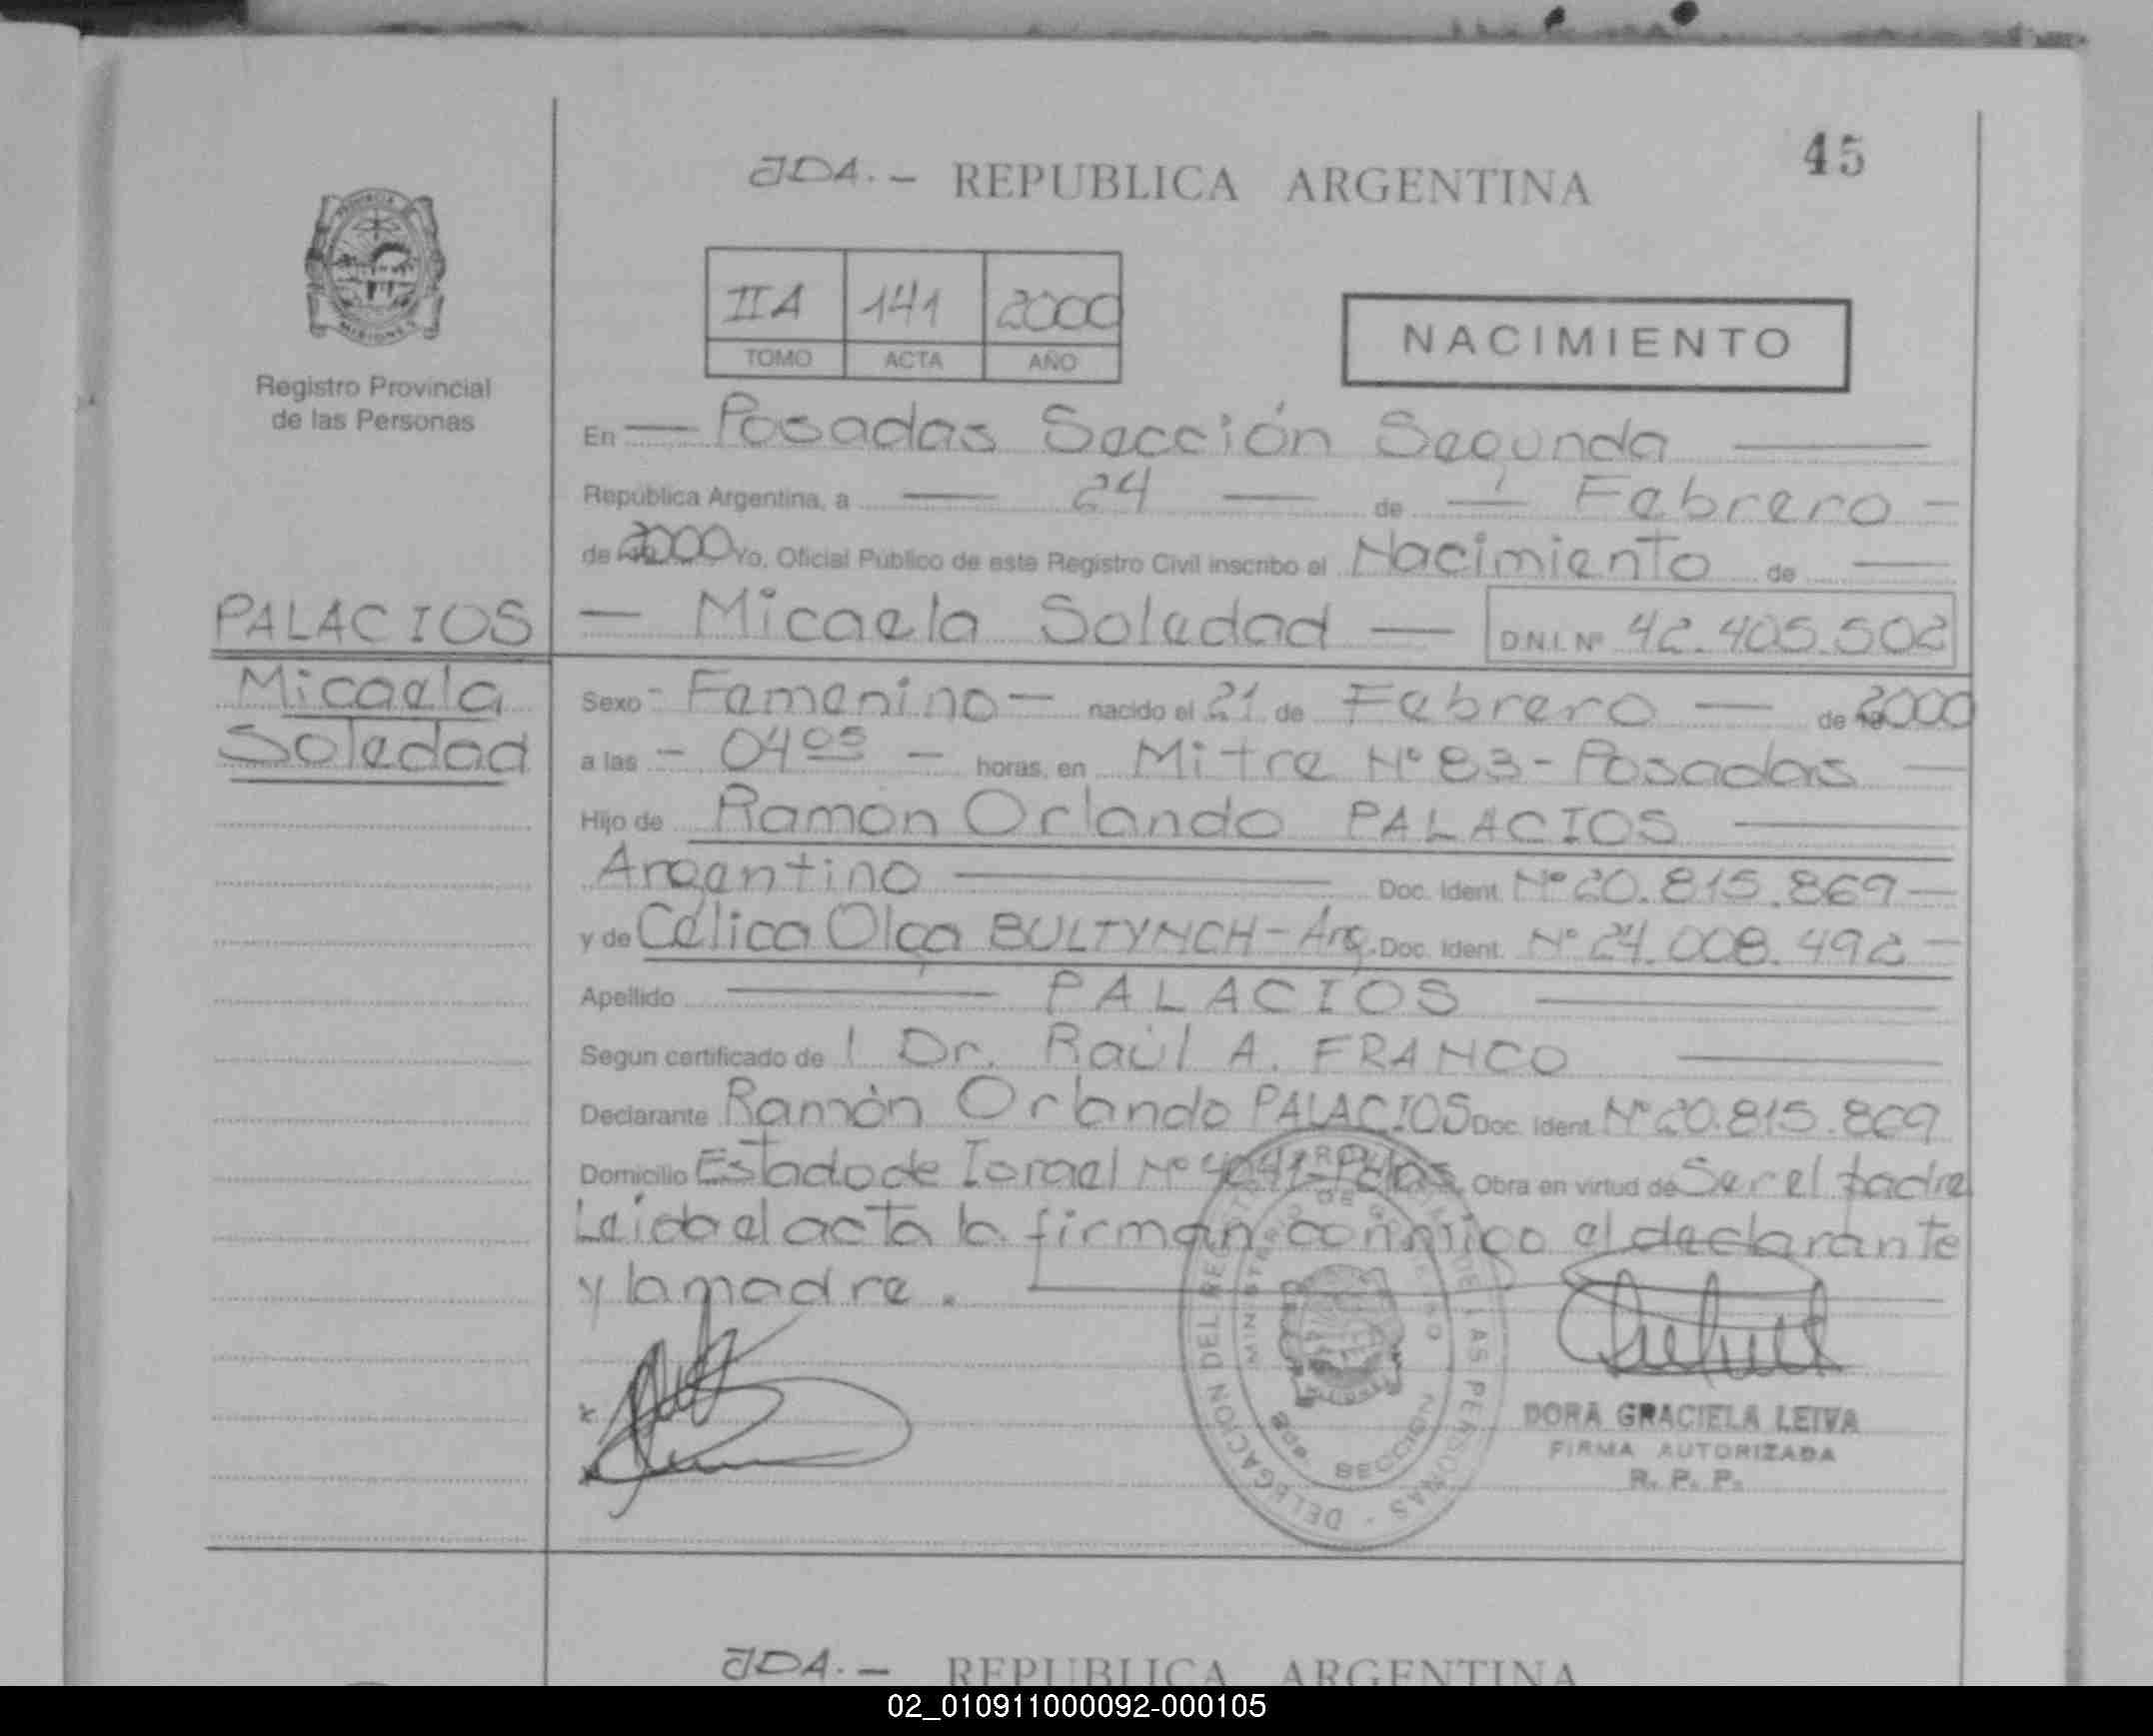 45
JDA. - REPUBLICA ARGENTINA
IIA 141 2000
TOMO ACTA AÑO
NACIMIENTO
MISIONES
Registro Provincial
de las Personas
En — Posadas Sección Segunda —
República Argentina, a — 24 — de — Febrero —
de 2000 Yo, Oficial Público de este Registro Civil inscribo el Nacimiento de —
PALACIOS
— Micaela Soledad — D.N.I. Nº 42.405.502
Micaela
Soledad
Sexo - Femenino — nacido el 21 de Febrero — de 2000
a las - 04 05 - horas, en Mitre Nº 83 - Posadas —
Hijo de Ramón Orlando PALACIOS —
Argentino — Doc. Ident. Nº 20.815.869 —
y de Célica Olga BULTYNCH - Arg. Doc. Ident. Nº 24.008.492 —
Apellido — PALACIOS —
Segun certificado de l Dr. Raúl A. FRANCO —
Declarante Ramón Orlando PALACIOS Doc. Ident. Nº 20.815.869
Domicilio Estado de Israel Nº 4041 - Pdas. Obra en virtud de Ser el padre
Leida el acta la firman conmigo el declarante
y la madre.
DELEGACION DEL REGISTRO PROVINCIAL DE LAS PERSONAS
MINISTERIO DE GOBIERNO
2da SECCION
DORA GRACIELA LEIVA
FIRMA AUTORIZADA
R. P. P.
JDA. - REPUBLICA ARGENTINA
02_010911000092-000105